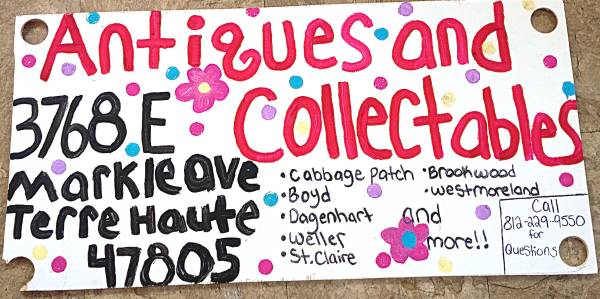 Antiques and
Collectables
3768 E
Markle ave
Terre Haute
47805
• Cabbage Patch
• Boyd
• Dagenhart
• Weller
• St. Claire
• Brookwood
• Westmoreland
and
more!!
Call
812-229-9550
for
Questions